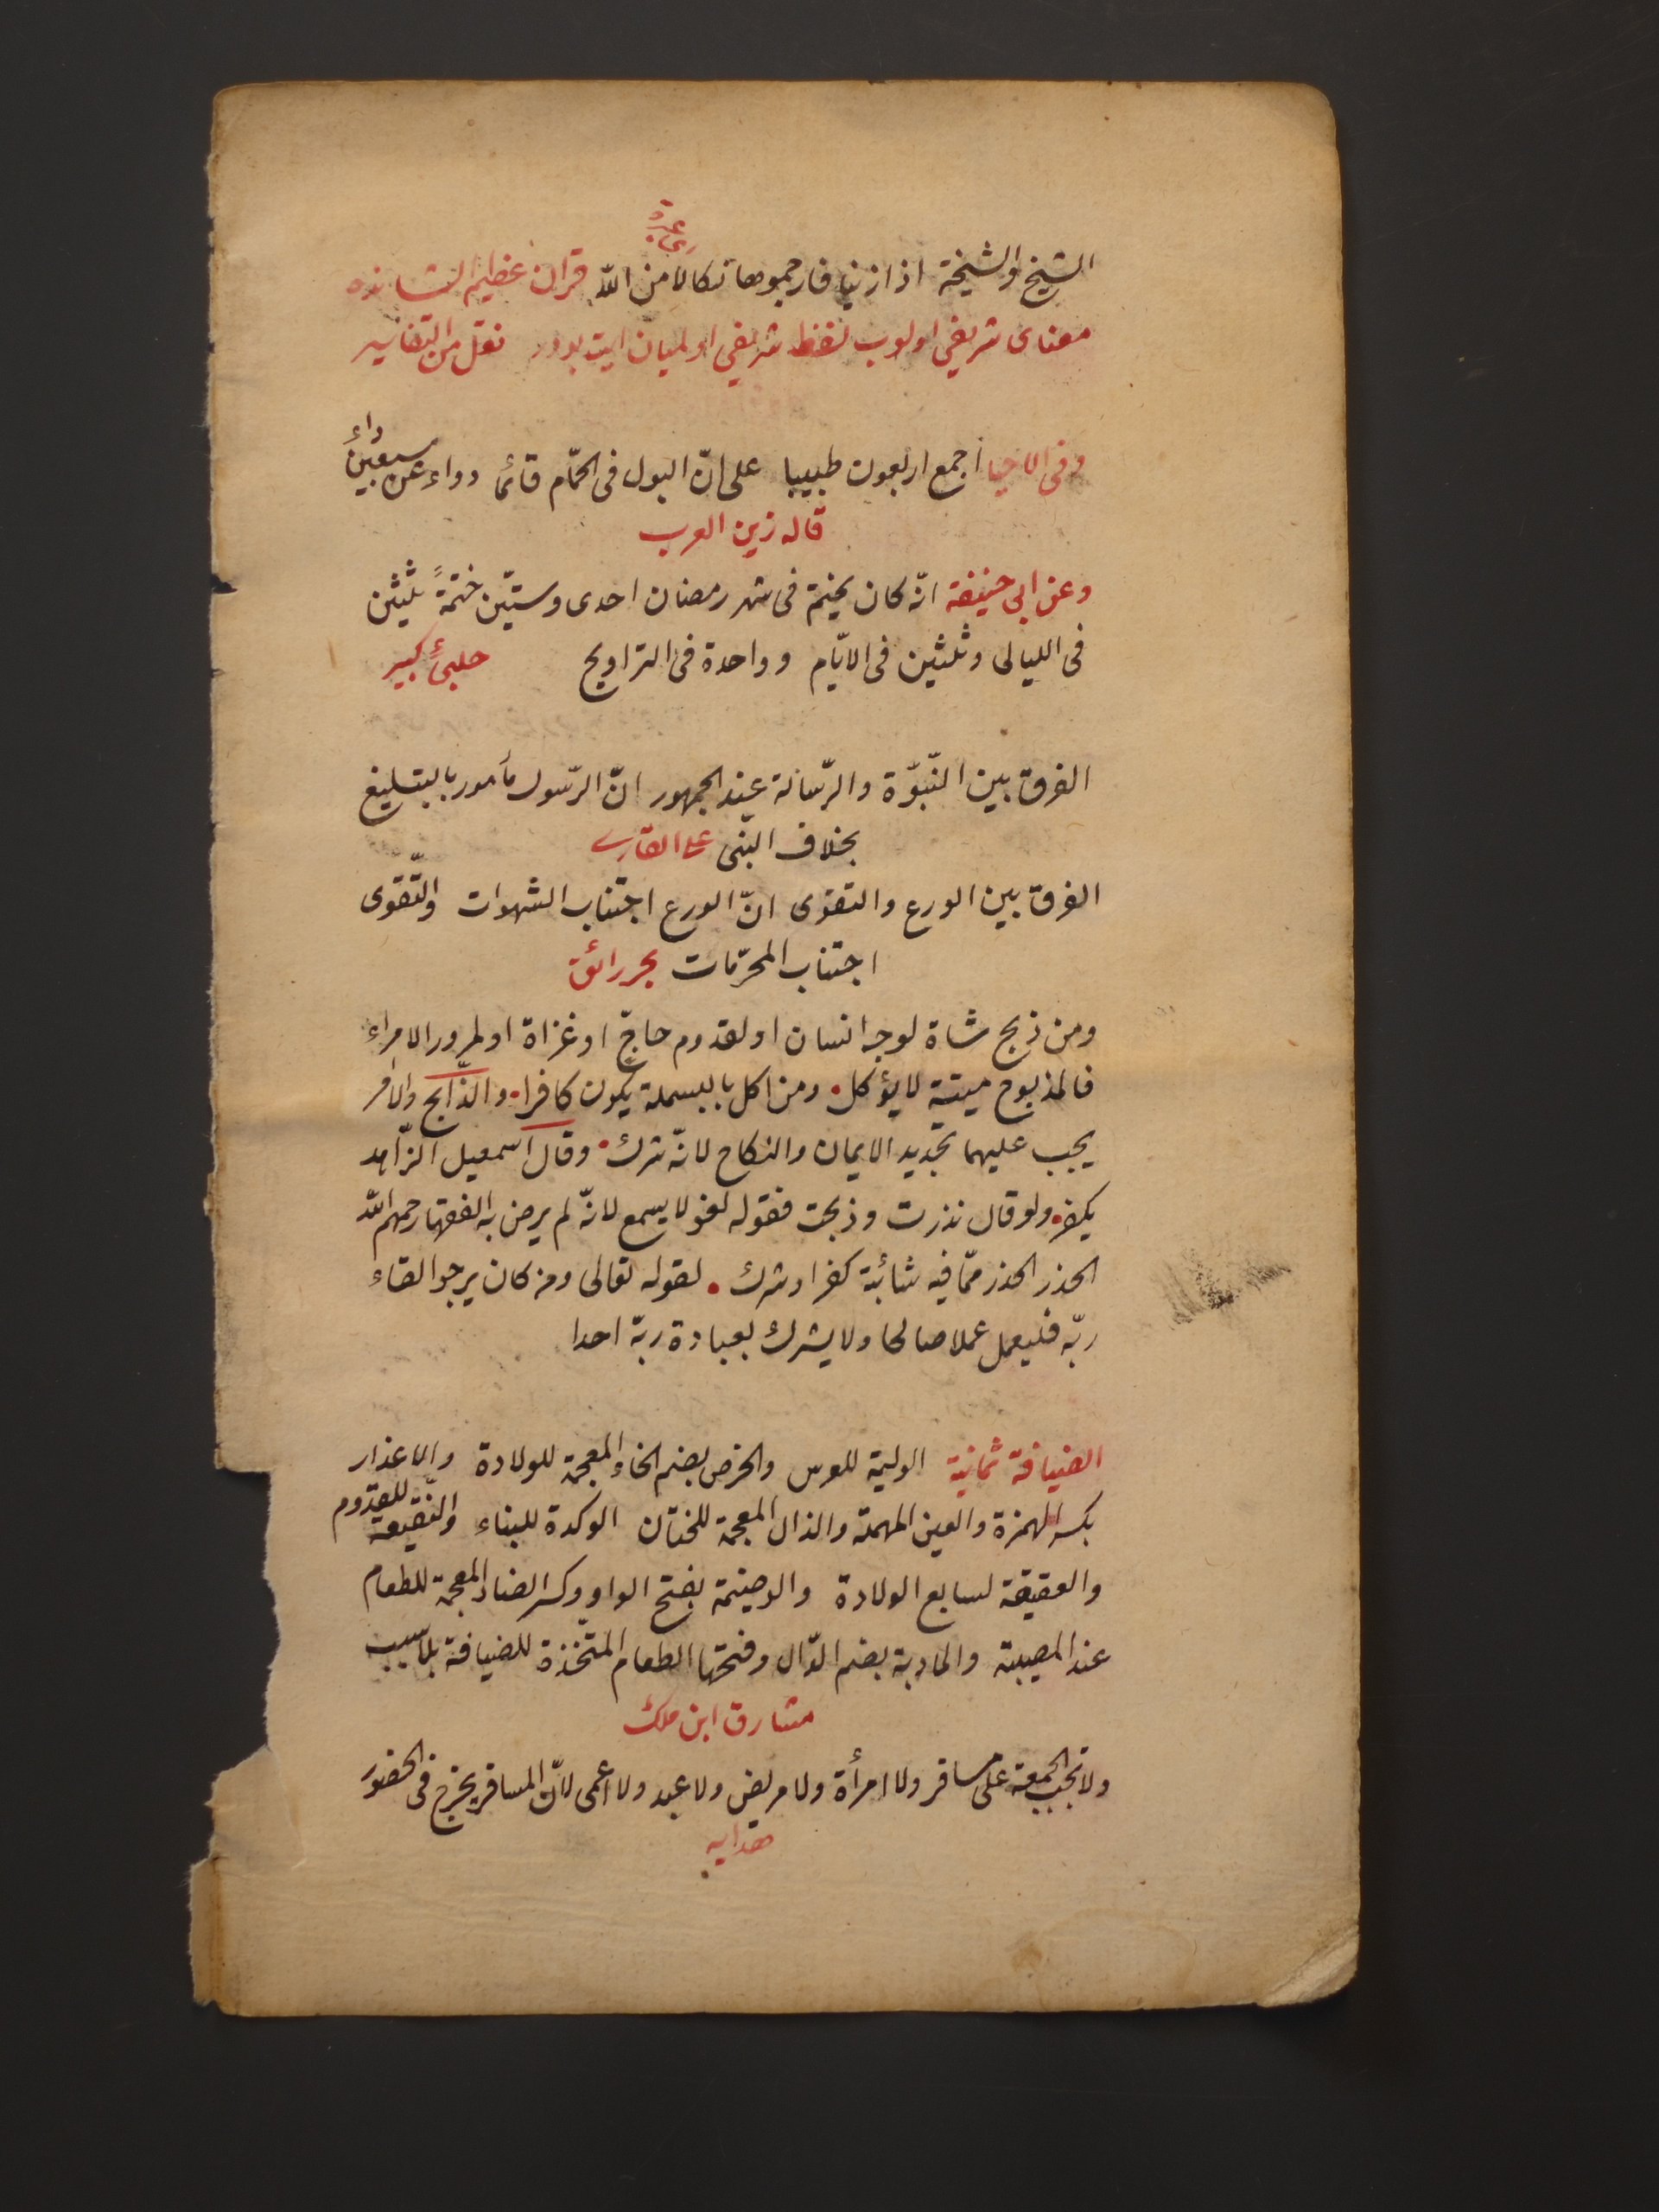 الشيخ والشيخة اذا زنيا فارجموها نكالا من الله قران عظيم الشانده
معناى شريفى اولوب لفظ شريفى اولميان ايت بودر نقل من التفاسير
وفى الاحيا اجمع اربعون طبيبا على انّ البول فى الحمّام قائما دواء عن سبعين داء
قاله زين العرب
وعن ابى حنيفة انّه كان يختم فى شهر رمضان احدى وستّين ختمةً ثلثين
فى الليالى وثلثين فى الايّام وواحدة فى التراويح حلبئ كبير
الفرق بين النّبوّة والرّسالة عند الجمهور انّ الرّسول مأمور بالتبليغ
بخلاف النّبى على القارى
الفرق بين الورع والتقوى انّ الورع اجتناب الشهوات والتّقوى
اجتناب المحرّمات بحر رائق
ومن ذبح شاة لوجه انسان او لقدوم حاجّ او غزاة او لمرور الامراء
فالمذبوح ميتة لا يؤكل • ومن اكل بالبسملة يكون كافرا • والذّابح والامر
يجب عليهما تجديد الايمان والنكاح لانّه شرك • وقال اسمعيل الزّاهد
يكفر • ولو قال نذرت وذبحت فقوله لغو لا يسمع لانّه لم يرض به الفقها رحمهم الله
الحذر الحذر ممّا فيه شائبة كفر او شرك • لقوله تعالى ومن كان يرجوا لقاء
ربّه فليعمل عملا صالحا ولا يشرك بعبادة ربّه احدا
الضيافة ثمانية الوليمة للعرس والخرص بضم الخاء المعجمة للولادة والاعذار
بكسر الهمزة والعين المهملة والذال المعجمة للختان الوكدة للبناء والنّقيعة للقدوم
والعقيقة لسابع الولادة والوضيمة بفتح الواو وكسر الضاد المعجمة للطعام
عند المصيبة والمادبة بضم الدّال وفتحها الطعام المتّخذة للضيافة بلا سبب
مشارق ابن ملك
ولا تجب الجمعة على مسافر ولا امرأة ولا مريض ولا عبد ولا اعمى لانّ المسافر يخرج فى الحضور
هدايه